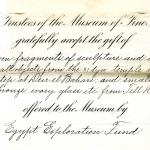 Trustees of the Museum of Fine
gratefully accept the gift of
fragments of sculpture and
from the XI dyn. temple
at Deir el Bahari, and
bronze ivory glass &c from Tell
offered to the Museum by
Egypt Exploration Fund